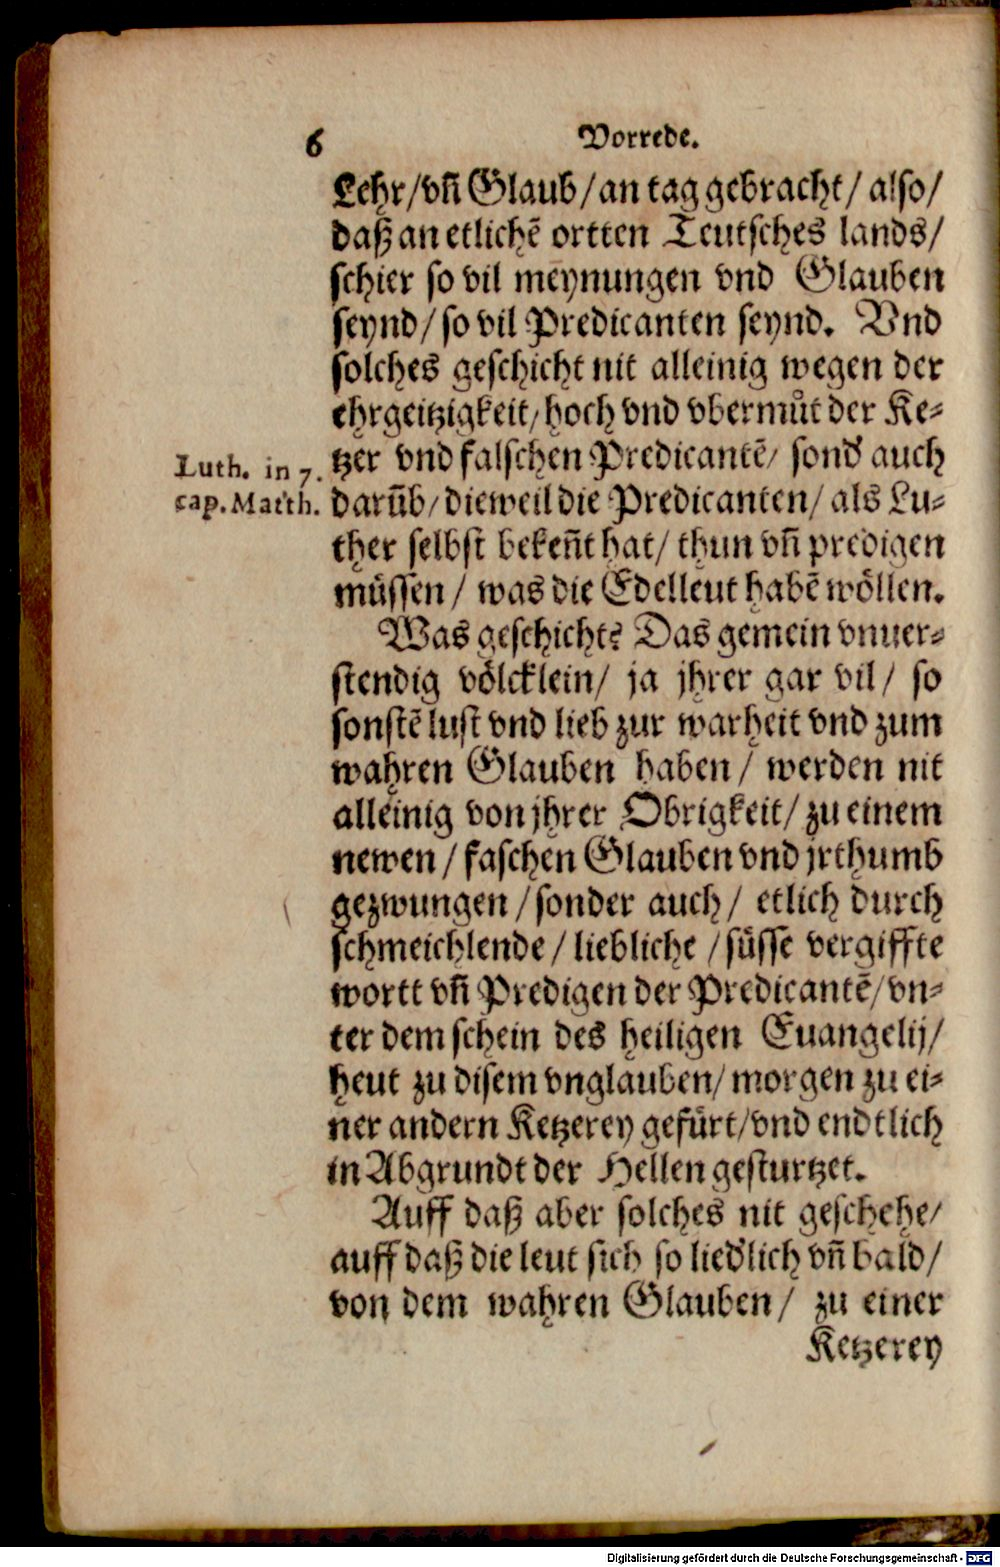 6 Vorrede.
Lehr/vñ Glaub/an tag gebracht/also/
daß an etlichẽ ortten Teutsches lands/
schier so vil meynungen vnd Glauben
seynd/so vil Predicanten seynd. Vnd
solches geschicht nit alleinig wegen der
ehrgeitzigkeit/hoch vnd vbermůt der Ke-
tzer vnd falschen Predicantẽ/ sond' auch
Luth. in 7.
cap. Matth.
darũb/dieweil die Predicanten/als Lu-
ther selbst bekeñt hat/thun vñ predigen
müssen/ was die Edelleut habẽ wöllen.
Was geschicht? Das gemein vnuer-
stendig völcklein/ ja jhrer gar vil/ so
sonstẽ lust vnd lieb zur warheit vnd zum
wahren Glauben haben/ werden nit
alleinig von jhrer Obrigkeit/zu einem
newen/faschen Glauben vnd jrthumb
gezwungen/sonder auch/ etlich durch
schmeichlende/liebliche/süsse vergiffte
wortt vñ Predigen der Predicantẽ/vn-
ter dem schein des heiligen Euangelij/
heut zu disem vnglauben/morgen zu ei-
ner andern Ketzerey gefürt/vnd endtlich
in Abgrundt der Hellen gesturtzet.
Auff daß aber solches nit geschehe/
auff daß die leut sich so lied'lich vñ bald/
von dem wahren Glauben/ zu einer
Ketzerey
Digitalisierung gefördert durch die Deutsche Forschungsgemeinschaft - DFG